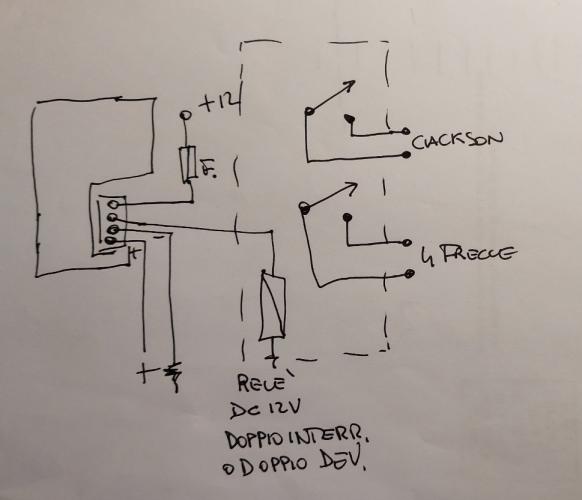 +12
F.
CLACKSON
- +
-
4 FRECCE
+
RELE'
DC 12V
DOPPIO INTERR.
O DOPPIO DEV.